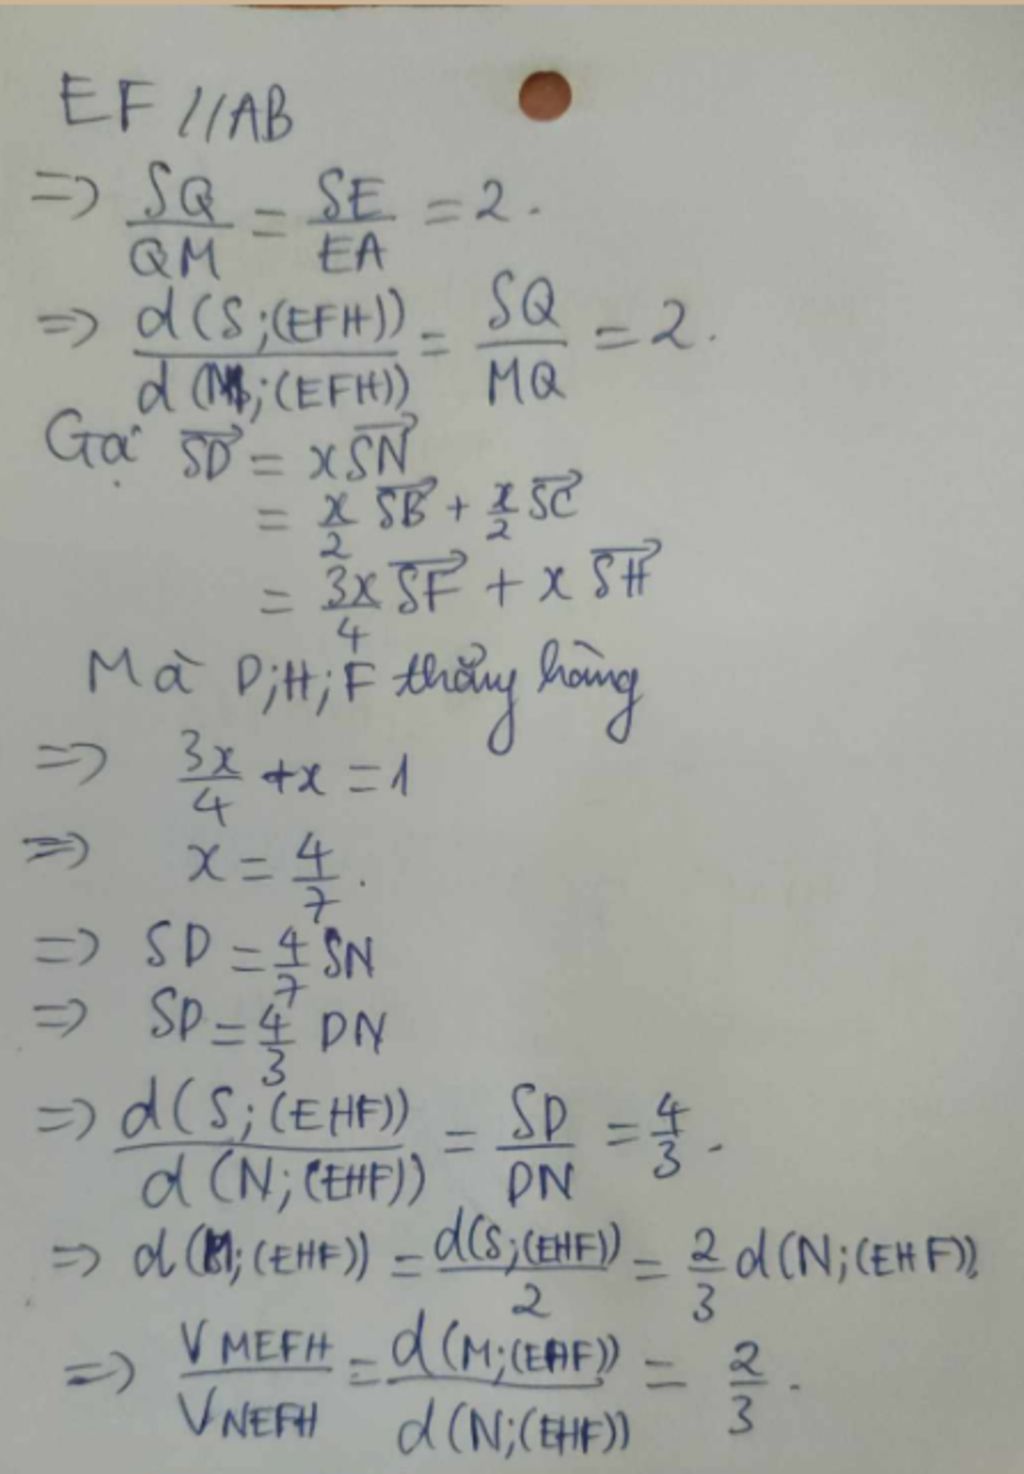 EF // AB
=> SQ/QM = SE/EA = 2.
=> d(S;(EFH))/d(M;(EFH)) = SQ/MQ = 2.
Gọi SD→ = x SN→
= x/2 SB→ + x/2 SC→
= 3x/4 SF→ + x SH→
Mà D;H;F thẳng hàng
=> 3x/4 + x = 1
=> x = 4/7.
=> SD = 4/7 SN
=> SD = 4/3 DN
=> d(S;(EHF))/d(N;(EHF)) = SD/DN = 4/3.
=> d(M;(EHF)) = d(S;(EHF))/2 = 2/3 d(N;(EHF))
=> VMEFH/VNEFH = d(M;(EHF))/d(N;(EHF)) = 2/3.